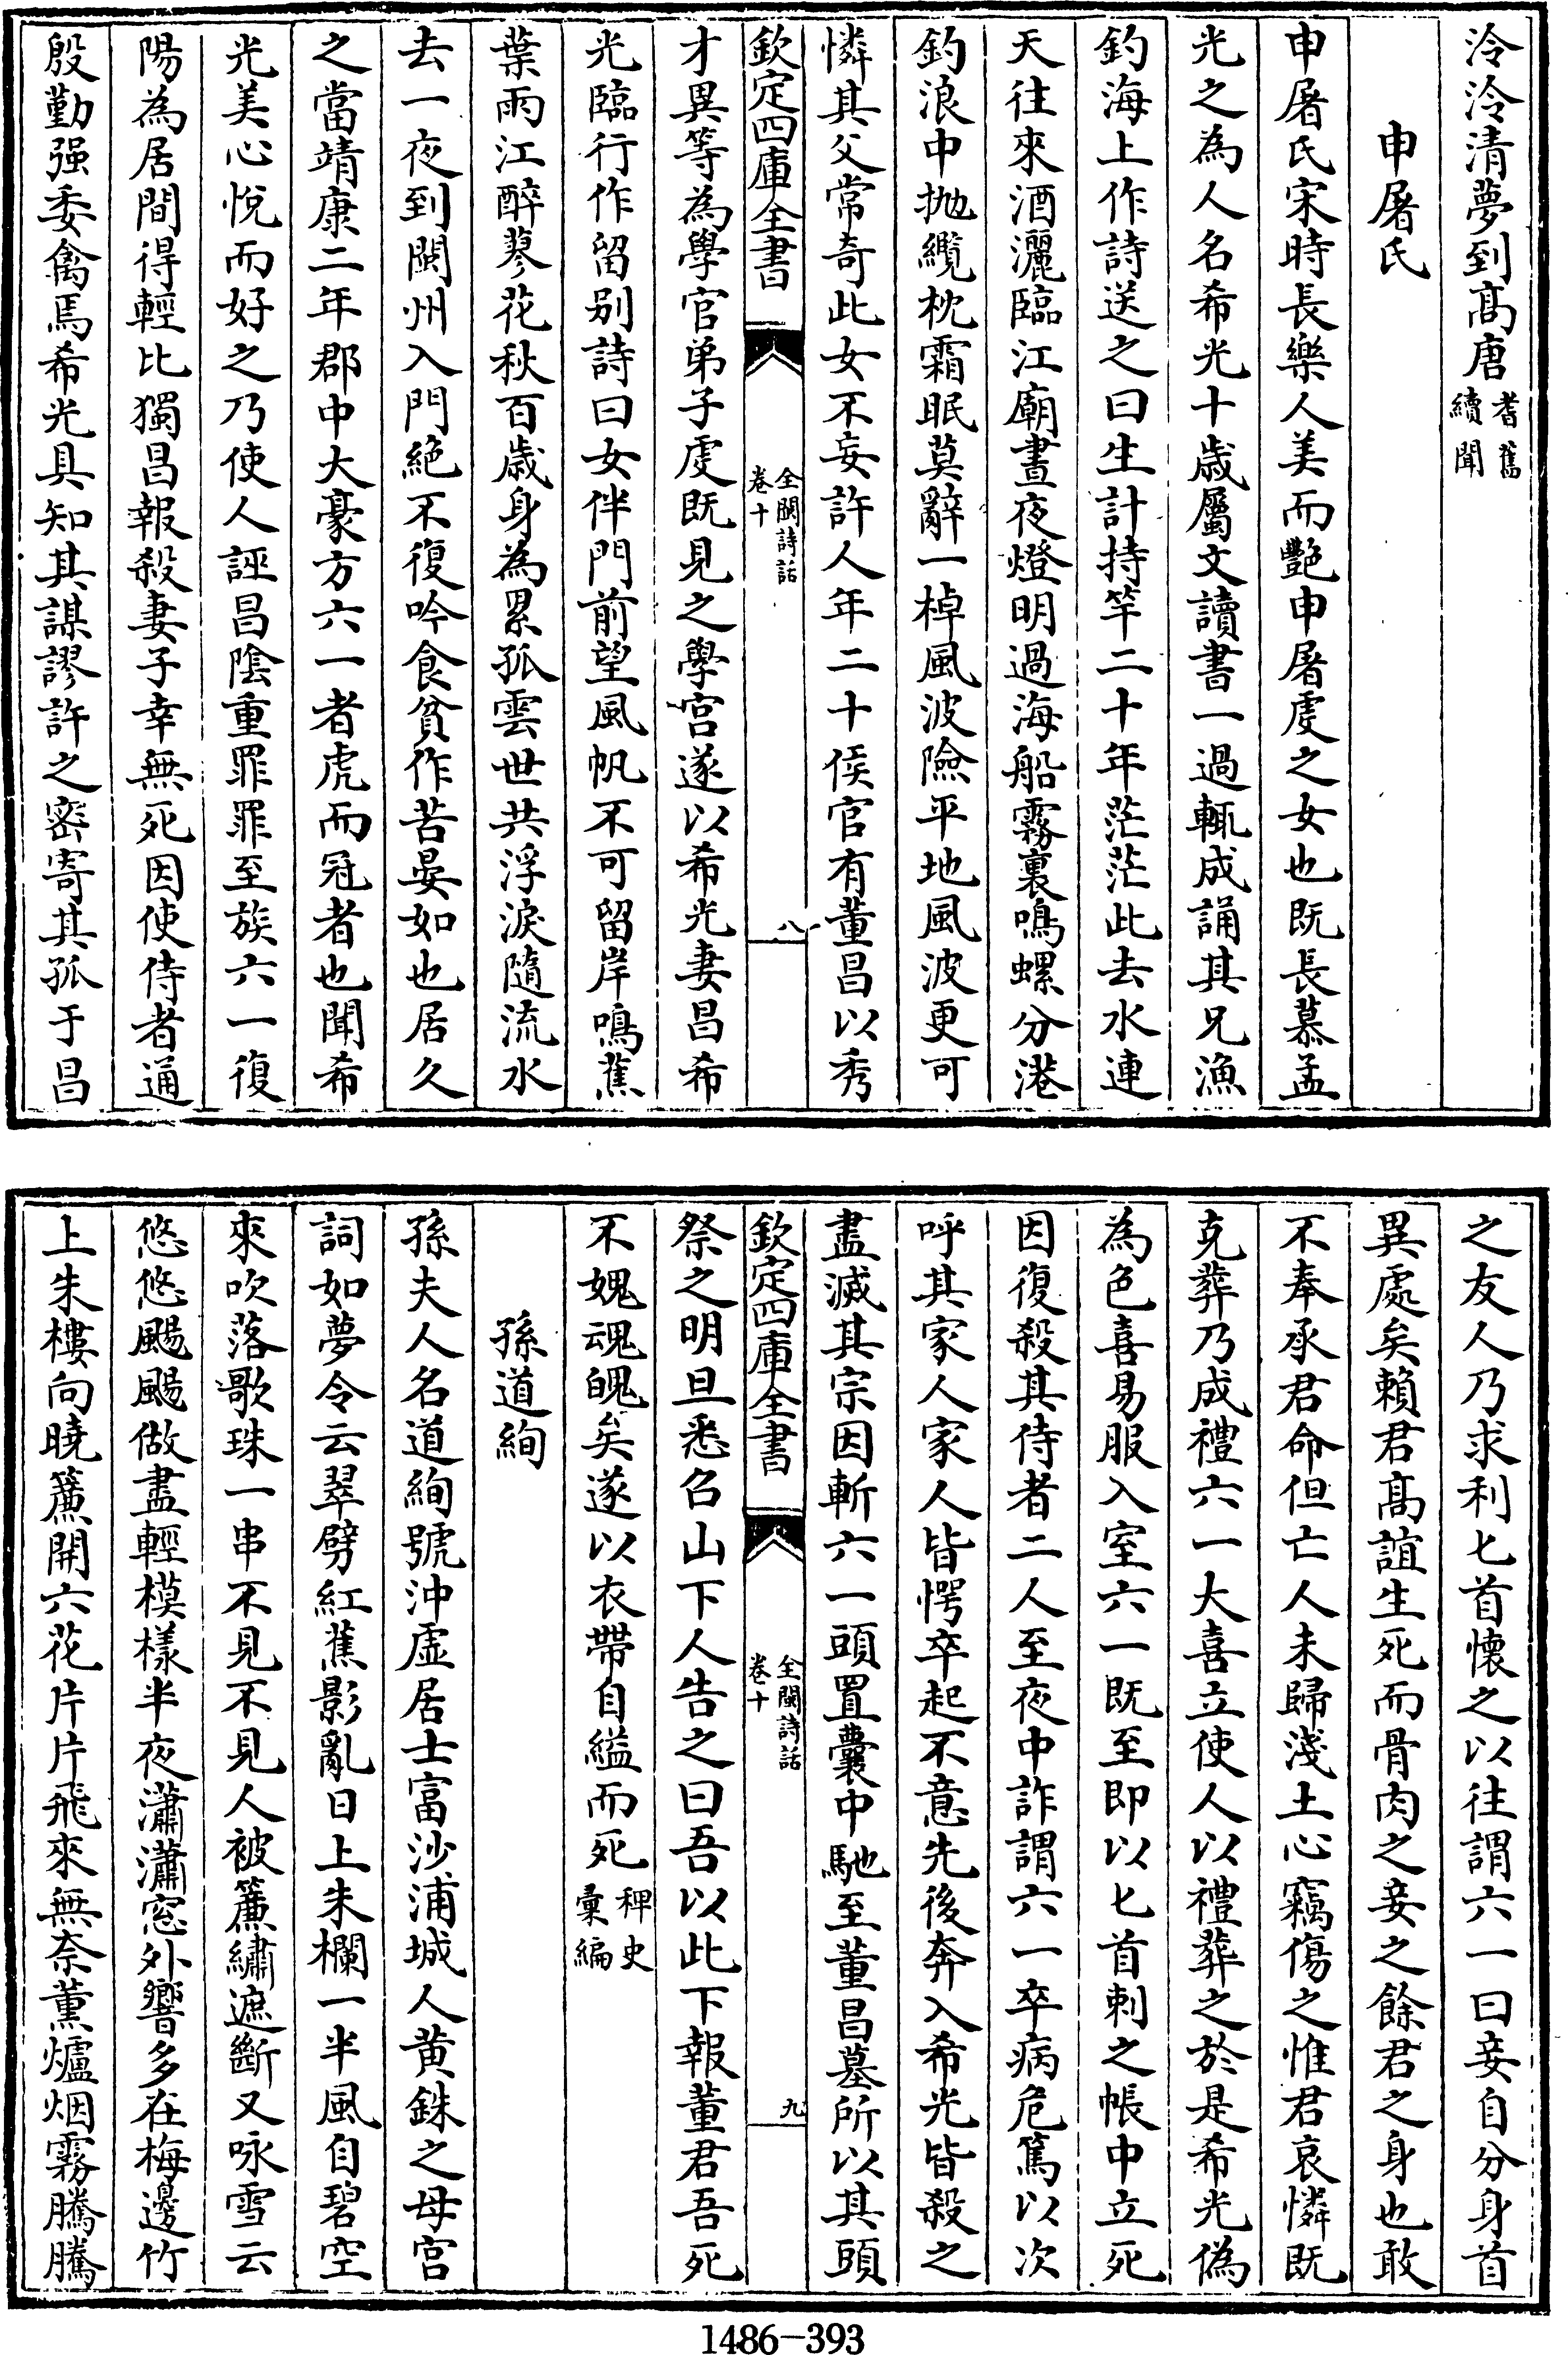 泠泠清夢到髙唐耆舊續聞
申屠氏
申屠氏宋時長樂人美而艷申屠虔之女也既長慕孟
光之為人名希光十歳屬文讀書一過輒成誦其兄漁
釣海上作詩送之曰生計持竿二十年茫茫此去水連
天往來酒灑臨江廟晝夜燈明過海船霧裏鳴螺分港
釣浪中拋纜枕霜眠莫辭一棹風波險平地風波更可
憐其父常奇此女不妄許人年二十侯官有董昌以秀
欽定四庫全書
全閩詩話
卷十
八
才異等為學官弟子虔既見之學宫遂以希光妻昌希
光臨行作留别詩曰女伴門前望風帆不可留岸鳴蕉
葉雨江醉蓼花秋百歳身為累孤雲世共浮淚隨流水
去一夜到閩州入門絶不復吟食貧作苦晏如也居久
之當靖康二年郡中大豪方六一者虎而冠者也聞希
光美心悅而好之乃使人誣昌隂重罪罪至族六一復
陽為居間得輕比獨昌報殺妻子幸無死因使侍者通
殷勤强委禽焉希光具知其謀謬許之密寄其孤于昌
之友人乃求利匕首懷之以往謂六一曰妾自分身首
異處矣賴君髙誼生死而骨肉之妾之餘君之身也敢
不奉承君命但亡人未歸淺土心竊傷之惟君哀憐既
克葬乃成禮六一大喜立使人以禮葬之於是希光偽
為色喜易服入室六一既至即以匕首刺之帳中立死
因復殺其侍者二人至夜中詐謂六一卒病危篤以次
呼其家人家人皆愕卒起不意先後奔入希光皆殺之
盡滅其宗因斬六一頭置囊中馳至董昌墓所以其頭
欽定四庫全書
全閩詩話
卷十
九
祭之明旦悉召山下人告之曰吾以此下報董君吾死
不媿魂魄矣遂以衣帶自縊而死稗史彙編
孫道絢
孫夫人名道絢號沖虚居士富沙浦城人黄銖之母宫
詞如夢令云翠劈紅蕉影亂日上朱欄一半風自碧空
來吹落歌珠一串不見不見人被簾繡遮斷又咏雪云
悠悠颺颺做盡輕模樣半夜瀟瀟窓外響多在梅邊竹
上朱樓向曉簾開六花片片飛來無奈薫爐烟霧騰騰
1486-393